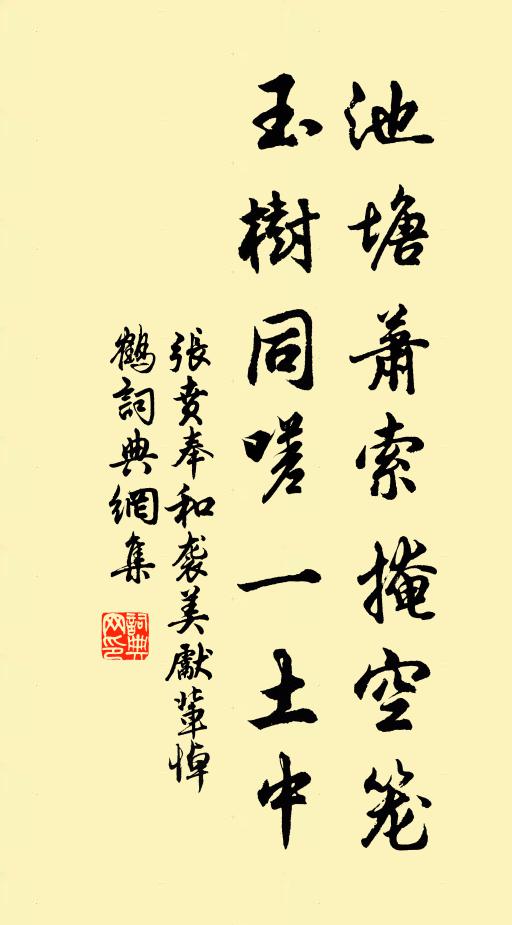 池塘蕭索掩空笼
玉樹同嗟一土中
張賁奉和袭美獻輩悼
鶴詞典網集
詞典网印